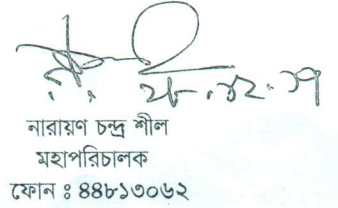 ২৮.১২.১৭
নারায়ণ চন্দ্র শীল
মহাপরিচালক
ফোন ঃ ৪৪৮১৩০৬২